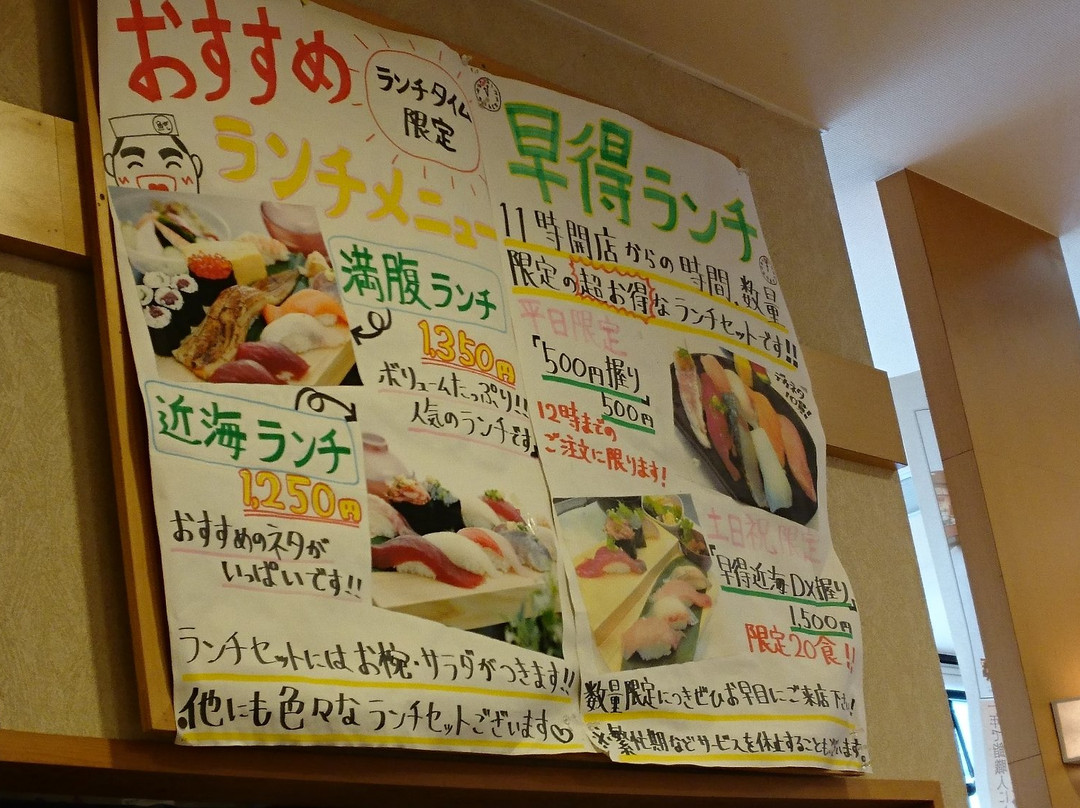 おすすめ
ランチタイム
限定
ランチメニュー
満腹ランチ
1,350円
ボリュームたっぷり!!
人気のランチです
近海ランチ
1,250円
おすすめのネタが
いっぱいです!!
ランチセットにはお椀・サラダがつきます!!
他にも色々なランチセットございます♡
早得ランチ
11時開店からの時間、数量
限定の超お得なランチセットです!!
平日限定
「500円握り」
500円
12時までの
ご注文に限ります!
デカネタ
10貫!!
土日祝限定
「早得近海DX握り」
1,500円
限定20食!!
数量限定につきぜひお早目にご来店下さい!
※繁忙期などサービスを休止することも